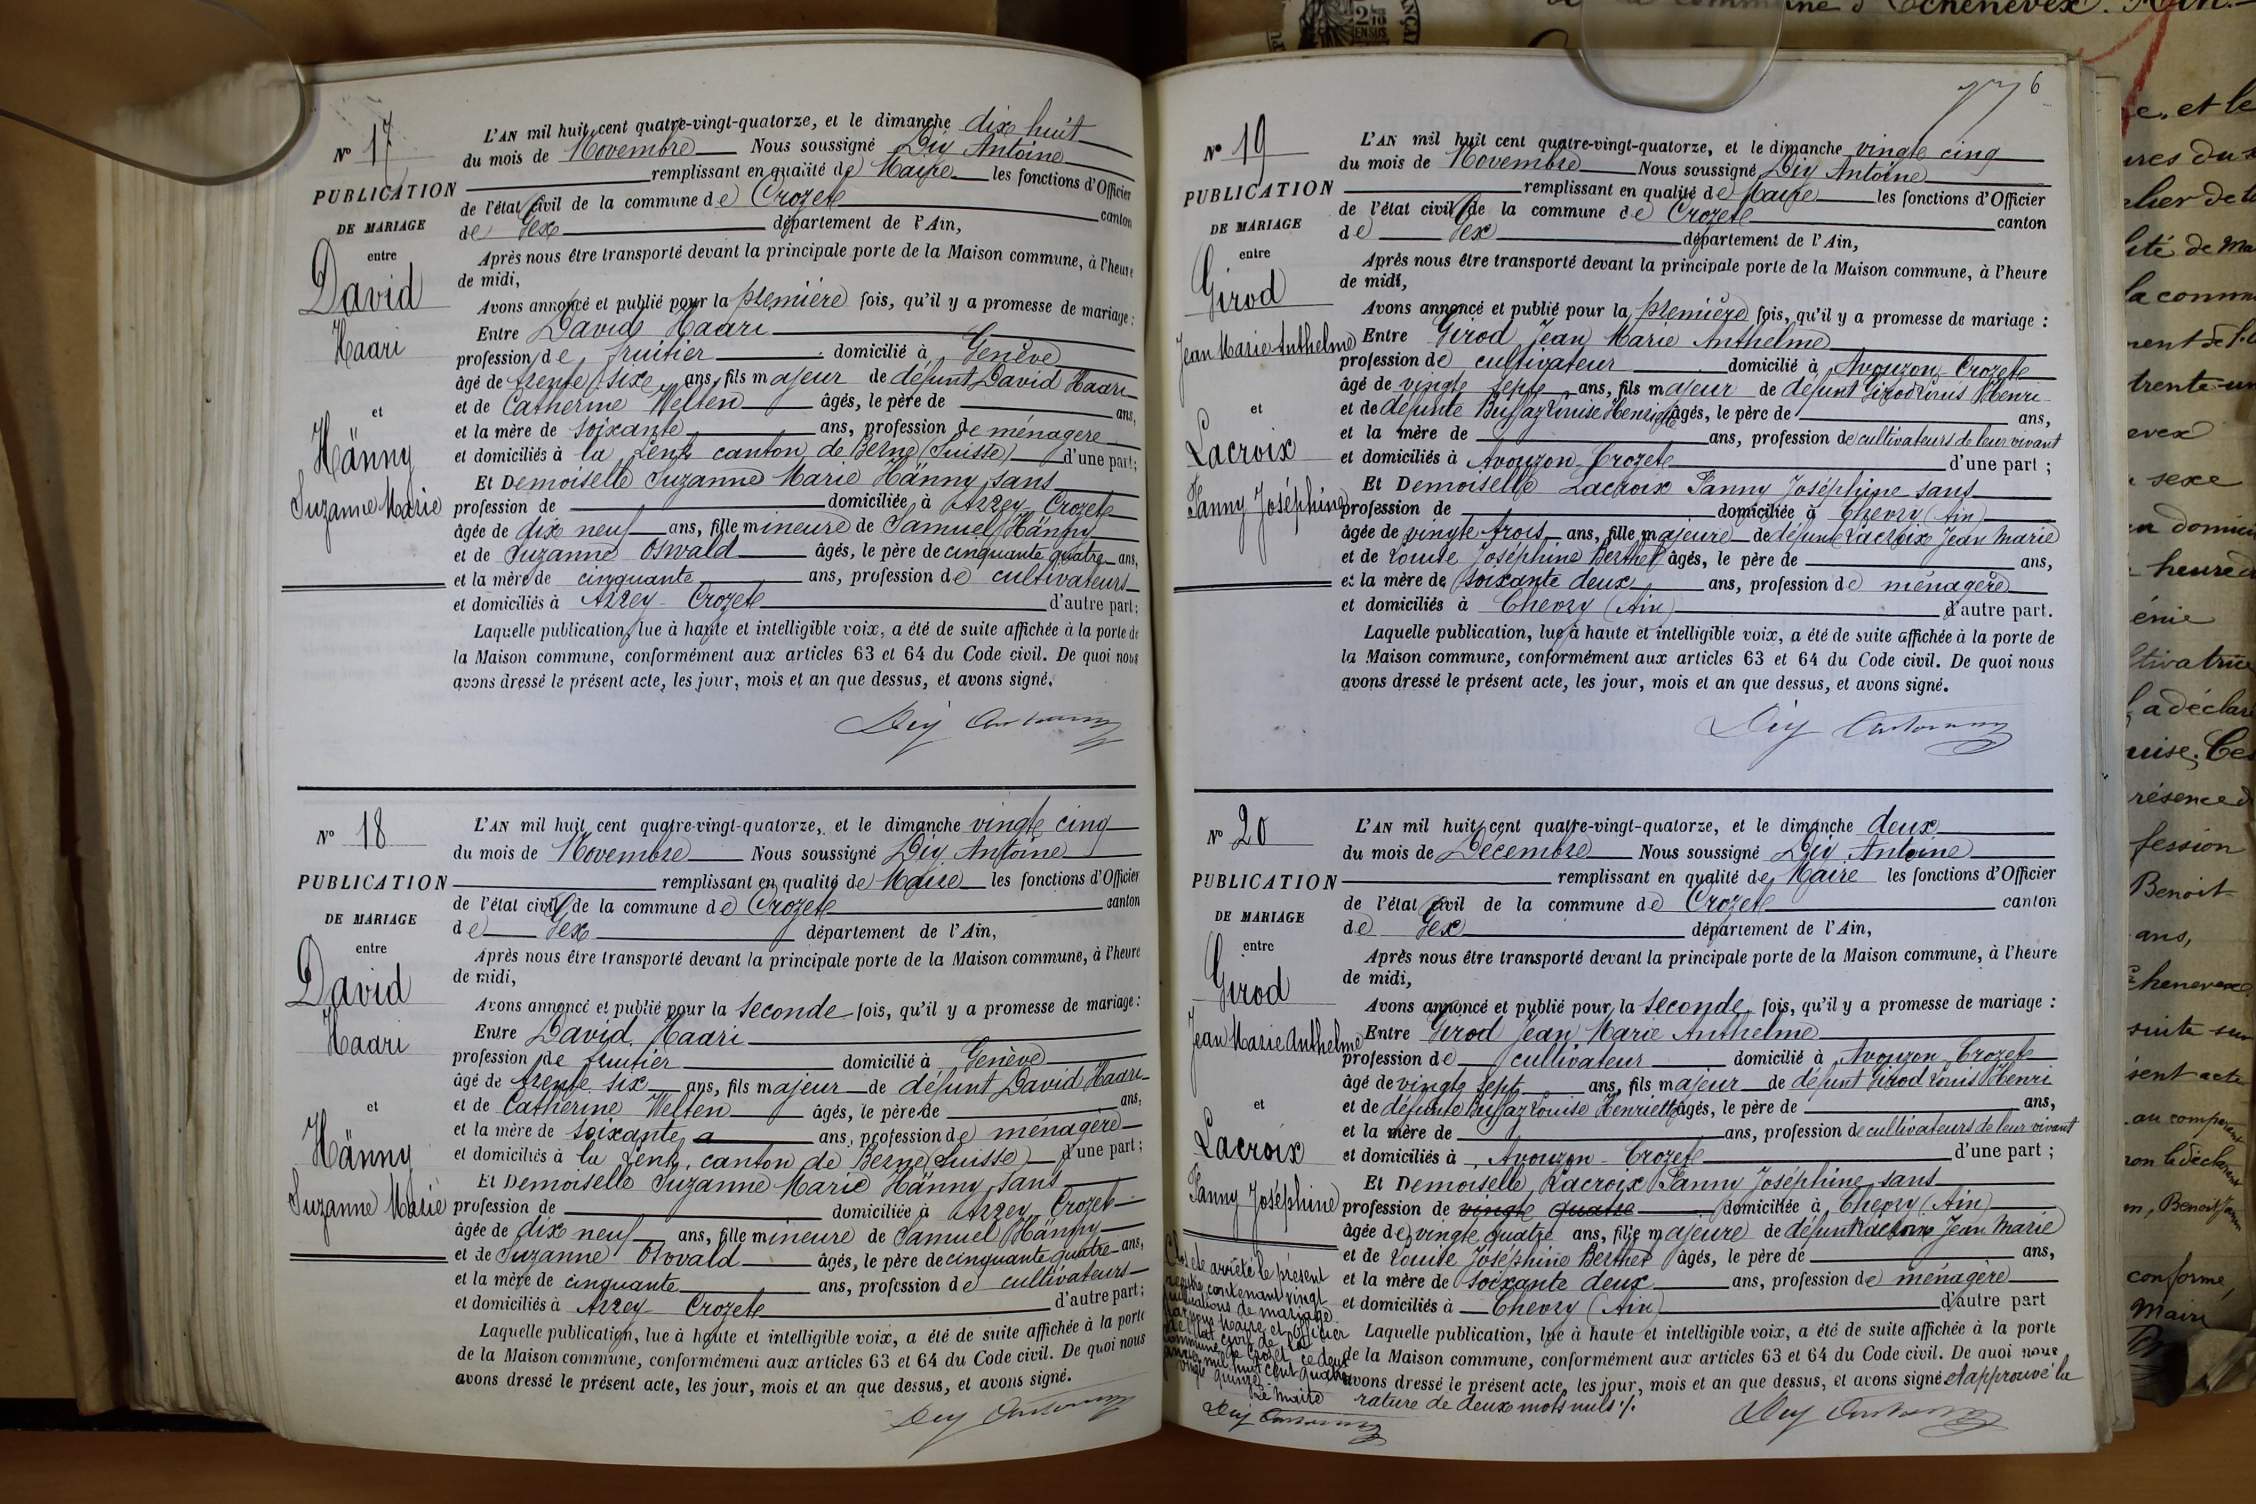 6
N° 17
PUBLICATION
DE MARIAGE
entre
David
Haari
et
Hänny
Suzanne Marie
L'AN mil huit cent quatre-vingt-quatorze, et le dimanche dix huit
du mois de Novembre Nous soussigné Diy Antoine
remplissant en qualité de Maire les fonctions d'Officier
de l'état civil de la commune de Crozet canton
de Gex département de l'Ain,
Après nous être transporté devant la principale porte de la Maison commune, à l'heure
de midi,
Avons annoncé et publié pour la première fois, qu'il y a promesse de mariage :
Entre David Haari
profession de fruitier domicilié à Genève
âgé de trente six ans, fils majeur de défunt David Haari
et de Catherine Welten âgés, le père de ans,
et la mère de soixante ans, profession de ménagère
et domiciliés à la Lenk canton de Berne (Suisse) d'une part;
Et Demoiselle Suzanne Marie Hänny sans
profession de domiciliée à Avzey Crozet
âgée de dix neuf ans, fille mineure de Samuel Hänny
et de Suzanne Oswald âgés, le père de cinquante quatre ans,
et la mère de cinquante ans, profession de cultivateurs
et domiciliés à Avzey - Crozet d'autre part;
Laquelle publication, lue à haute et intelligible voix, a été de suite affichée à la porte de
la Maison commune, conformément aux articles 63 et 64 du Code civil. De quoi nous
avons dressé le présent acte, les jour, mois et an que dessus, et avons signé.
Diy Antoine
N° 18
PUBLICATION
DE MARIAGE
entre
David
Haari
et
Hänny
Suzanne Marie
L'AN mil huit cent quatre-vingt-quatorze, et le dimanche vingt cinq
du mois de Novembre Nous soussigné Diy Antoine
remplissant en qualité de Maire les fonctions d'Officier
de l'état civil de la commune de Crozet canton
de Gex département de l'Ain,
Après nous être transporté devant la principale porte de la Maison commune, à l'heure
de midi,
Avons annoncé et publié pour la seconde fois, qu'il y a promesse de mariage :
Entre David Haari
profession de fruitier domicilié à Genève
âgé de trente six ans, fils majeur de défunt David Haari
et de Catherine Welten âgés, le père de ans,
et la mère de soixante ans, profession de ménagère
et domiciliés à la Lenk, canton de Berne (Suisse) d'une part;
Et Demoiselle Suzanne Marie Hänny sans
profession de domiciliée à Avzey Crozet
âgée de dix neuf ans, fille mineure de Samuel Hänny
et de Suzanne Oswald âgés, le père de cinquante quatre ans,
et la mère de cinquante ans, profession de cultivateurs
et domiciliés à Avzey - Crozet d'autre part;
Laquelle publication, lue à haute et intelligible voix, a été de suite affichée à la porte
de la Maison commune, conformément aux articles 63 et 64 du Code civil. De quoi nous
avons dressé le présent acte, les jour, mois et an que dessus, et avons signé.
Diy Antoine
N° 19
PUBLICATION
DE MARIAGE
entre
Girod
Jean Marie Anthelme
et
Lacroix
Fanny Joséphine
L'AN mil huit cent quatre-vingt-quatorze, et le dimanche vingt cinq
du mois de Novembre Nous soussigné Diy Antoine
remplissant en qualité de Maire les fonctions d'Officier
de l'état civil de la commune de Crozet canton
de Gex département de l'Ain,
Après nous être transporté devant la principale porte de la Maison commune, à l'heure
de midi,
Avons annoncé et publié pour la première fois, qu'il y a promesse de mariage :
Entre Girod Jean Marie Anthelme
profession de cultivateur domicilié à Avouzon Crozet
âgé de vingt sept ans, fils majeur de défunt Girod Louis Henri
et de défunte Buffaz Louise Henriette âgés, le père de ans,
et la mère de ans, profession de cultivateurs de leur vivant
et domiciliés à Avouzon - Crozet d'une part ;
Et Demoiselle Lacroix Fanny Joséphine sans
profession de domiciliée à Chevry (Ain)
âgée de vingt trois ans, fille majeure de défunt Lacroix Jean Marie
et de Louise Joséphine Berthet âgés, le père de ans,
et la mère de soixante deux ans, profession de ménagère
et domiciliés à Chevry (Ain) d'autre part.
Laquelle publication, lue à haute et intelligible voix, a été de suite affichée à la porte de
la Maison commune, conformément aux articles 63 et 64 du Code civil. De quoi nous
avons dressé le présent acte, les jour, mois et an que dessus, et avons signé.
Diy Antoine
N° 20
PUBLICATION
DE MARIAGE
entre
Girod
Jean Marie Anthelme
et
Lacroix
Fanny Joséphine
L'AN mil huit cent quatre-vingt-quatorze, et le dimanche deux
du mois de Décembre Nous soussigné Diy Antoine
remplissant en qualité de Maire les fonctions d'Officier
de l'état civil de la commune de Crozet canton
de Gex département de l'Ain,
Après nous être transporté devant la principale porte de la Maison commune, à l'heure
de midi,
Avons annoncé et publié pour la seconde fois, qu'il y a promesse de mariage :
Entre Girod Jean Marie Anthelme
profession de cultivateur domicilié à Avouzon - Crozet
âgé de vingt sept ans, fils majeur de défunt Girod Louis Henri
et de défunte Buffaz Louise Henriette âgés, le père de ans,
et la mère de ans, profession de cultivateurs de leur vivant
et domiciliés à Avouzon - Crozet d'une part ;
Et Demoiselle Lacroix Fanny Joséphine sans
profession de vingt quatre domiciliée à Chevry (Ain)
âgée de vingt quatre ans, fille majeure de défunt Lacroix Jean Marie
et de Louise Joséphine Berthet âgés, le père de ans,
et la mère de soixante deux ans, profession de ménagère
et domiciliés à Chevry (Ain) d'autre part
Laquelle publication, lue à haute et intelligible voix, a été de suite affichée à la porte
de la Maison commune, conformément aux articles 63 et 64 du Code civil. De quoi nous
avons dressé le présent acte, les jour, mois et an que dessus, et avons signé et approuvé la
rature de deux mots nuls ./.
Diy Antoine
Clos et arrêté le présent
registre contenant vingt
publications de mariage
par nous Maire et officier
de l'état civil de la
commune de Crozet ce deux
janvier mil huit cent quatre
vingt quinze.
Le Maire
Diy Antoine
e, et le
lité de Ma
la commu
trente-un
evex
sexe
domici
heure d
énie
ltivatrice
a déclaré
résence d
fession
Benoit
ans,
Chenevex
suite
sent acte
au comparant
Benoit
conforme,
Maire